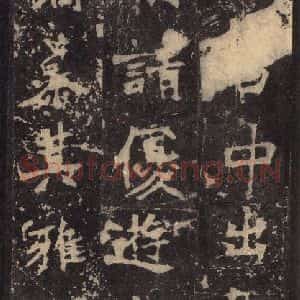 中出
優遊
慕其雅
Shufawang.CN